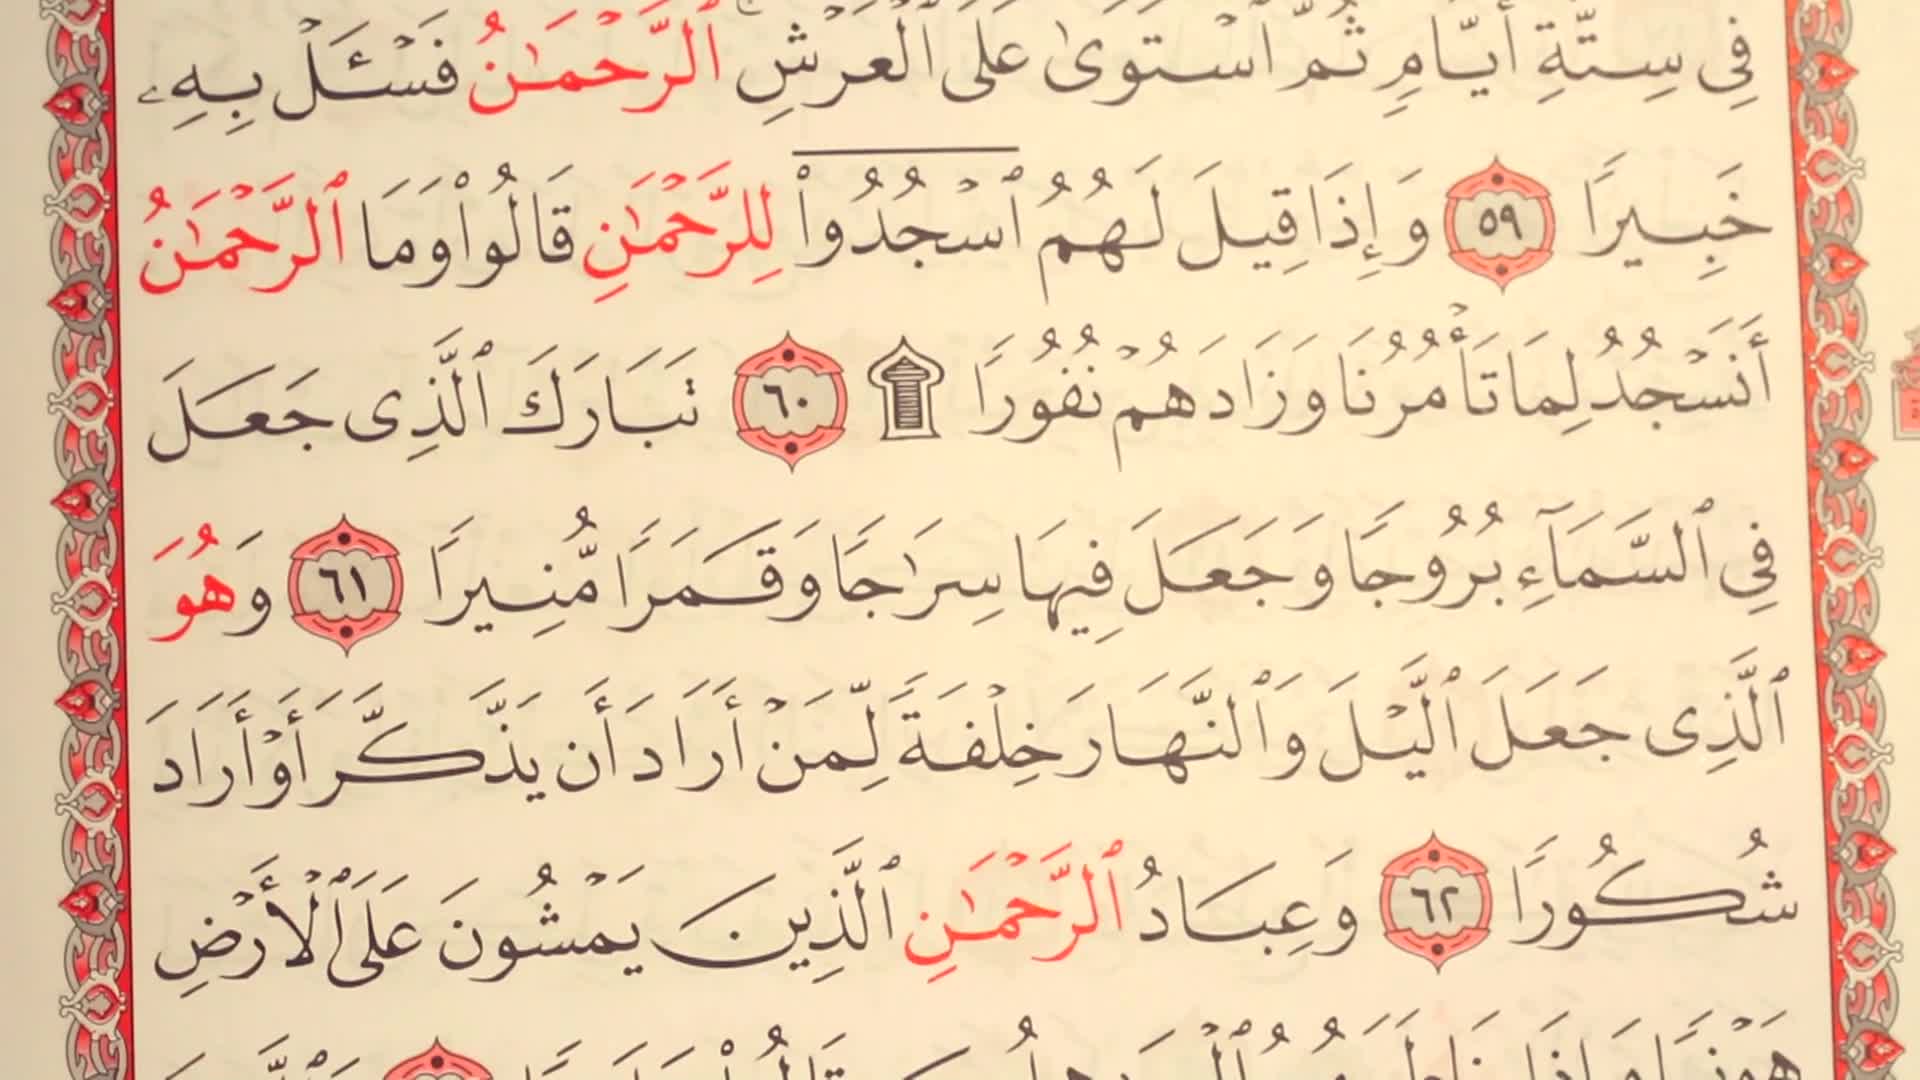 فِي سِتَّةِ أَيَّامٍ ثُمَّ ٱسْتَوَىٰ عَلَى ٱلْعَرْشِ ۚ ٱلرَّحْمَٰنُ فَسْـَٔلْ بِهِۦ
خَبِيرًا ٥٩ وَإِذَا قِيلَ لَهُمُ ٱسْجُدُوا۟ لِلرَّحْمَٰنِ قَالُوا۟ وَمَا ٱلرَّحْمَٰنُ
أَنَسْجُدُ لِمَا تَأْمُرُنَا وَزَادَهُمْ نُفُورًا ۩ ٦٠ تَبَارَكَ ٱلَّذِى جَعَلَ
فِي ٱلسَّمَآءِ بُرُوجًا وَجَعَلَ فِيهَا سِرَٰجًا وَقَمَرًا مُّنِيرًا ٦١ وَهُوَ
ٱلَّذِى جَعَلَ ٱلَّيْلَ وَٱلنَّهَارَ خِلْفَةً لِّمَنْ أَرَادَ أَن يَذَّكَّرَ أَوْ أَرَادَ
شُكُورًا ٦٢ وَعِبَادُ ٱلرَّحْمَٰنِ ٱلَّذِينَ يَمْشُونَ عَلَى ٱلْأَرْضِ